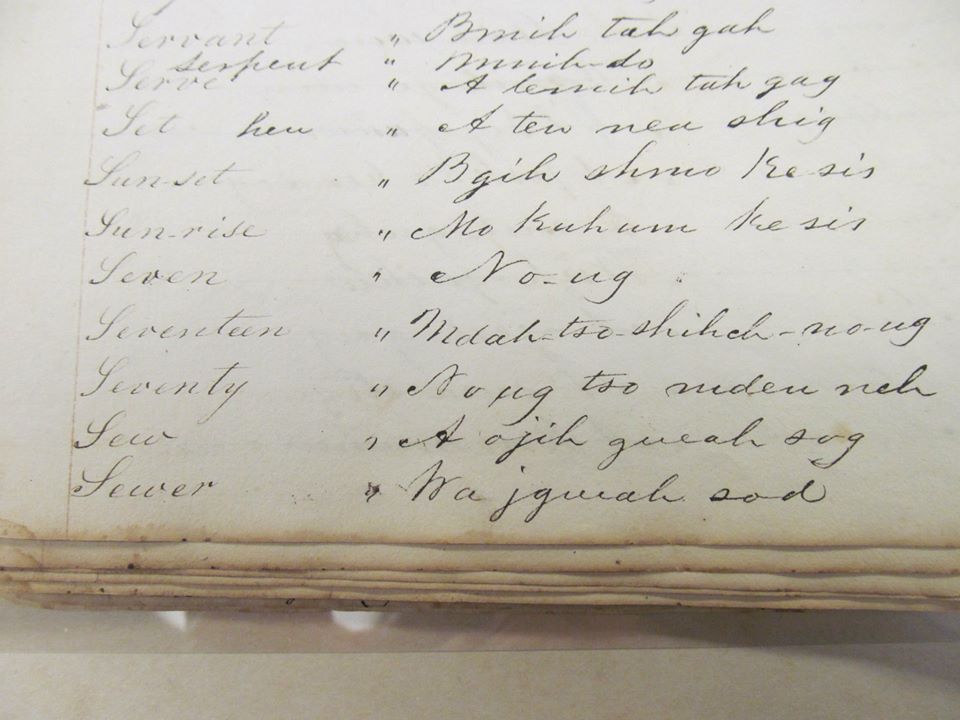 Servant " Bmih tah gah
serpent " Mnih-do
Serve " A bemih tah gag
Set hen " A ten neu shig
Sun-set " Bgih shmo Ke sis
Sun-rise " Mo Kuhum Ke sis
Seven " No-ug
Seventeen " Mdah-tso-shihch-no-ug
Seventy " No ug tso mdeu neh
Sew " A ojih gueah sog
Sewer " Wa jgueah sod